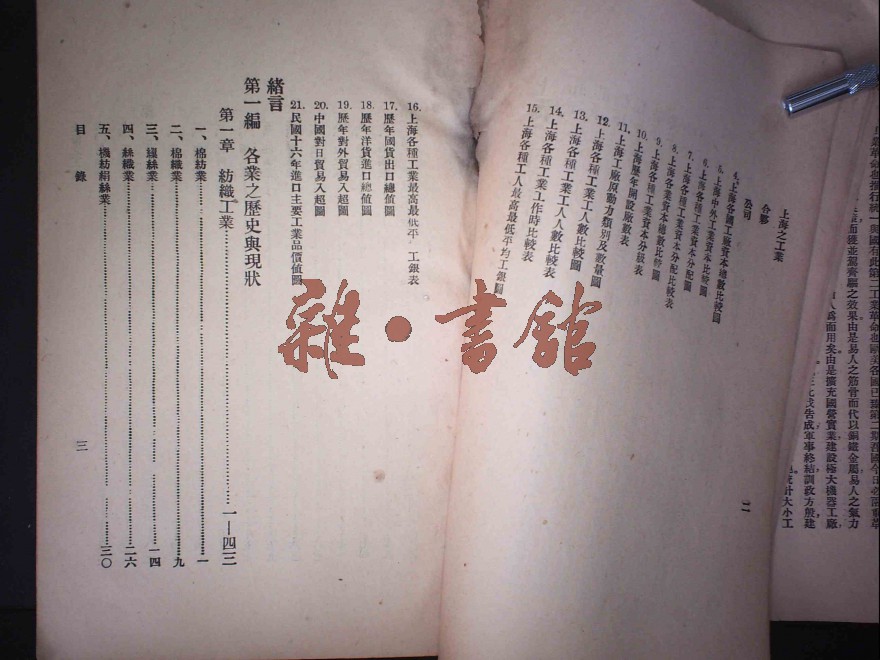 上海之工業
合夥
公司
4. 上海各國工廠資本總數比較圖
5. 上海中外工業資本比較圖
6. 上海各種工業資本分配圖
7. 上海各種工業資本分配比較表
8. 上海各業資本總數比較圖
9. 上海各種工業資本分級表
10. 上海歷年開設廠數表
11. 上海工廠原動力類別及數量圖
12. 上海各種工業工人數比較圖
13. 上海各種工業工人人數比較表
14. 上海各種工業工作時比較表
15. 上海各種工人最高最低平均工銀圖
二
16. 上海各種工業最高最低平 工銀表
17. 歷年國貨出口總値圖
18. 歷年洋貨進口總値圖
19. 歷年對外貿易入超圖
20. 中國對日貿易入超圖
21. 民國十六年進口主要工業品價値圖
緒言
第一編 各業之歷史與現狀
第一章 紡織工業……一—四三
一、棉紡業……一
二、棉織業……九
三、繅絲業……一四
四、絲織業……二六
五、機紡絹絲業……三〇
目 錄
三
雜·書館